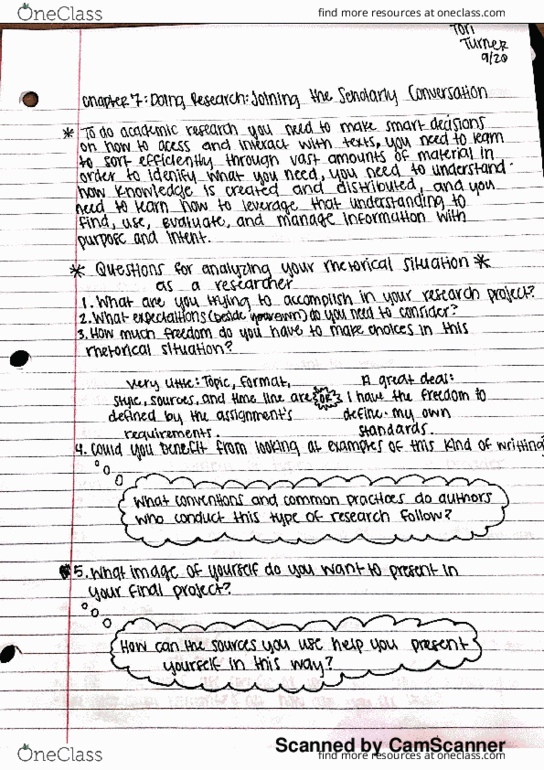 OneClass
find more resources at oneclass.com
Tori
Turner
9/20
Chapter 7: Doing Research: Joining the Scholarly Conversation
* To do academic research you need to make smart decisions
on how to acess and interact with texts, you need to learn
to sort efficiently through vast amounts of material in
order to idenify what you need, you need to understand
how knowledge is created and distributed, and you
need to learn how to leverage that understanding to
find, use, evaluate, and manage information with
purpose and intent.
* Questions for analyzing your rhetorical situation *
as a researcher
1. What are you trying to accomplish in your research project?
2. What expectations (beside your own) do you need to consider?
3. How much freedom do you have to make choices in this
rhetorical situation?
Very little: Topic, format,
style, sources, and time line are
defined by the assignments
requirements.
OR
A great deal:
I have the freedom to
define my own
standards.
4. Could you benefit from looking at examples of this kind of writing
What conventions and common practices do authors
who conduct this type of research follow?
5. What image of yourself do you want to present in
your final project?
How can the sources you use help you present
yourself in this way?
Scanned by CamScanner
OneClass
find more resources at oneclass.com